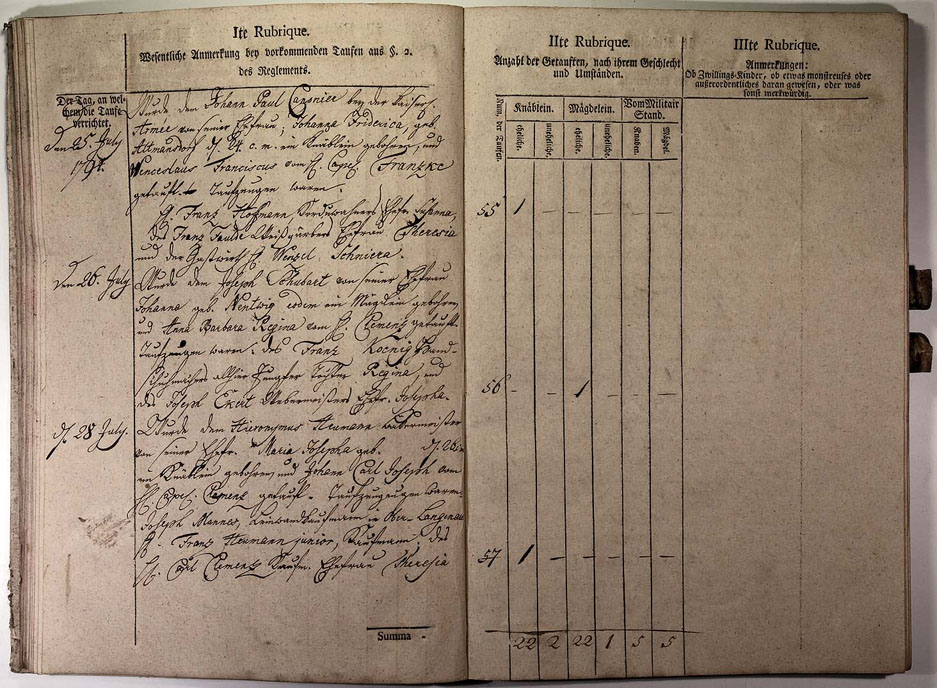 Ite Rubrique.
Wesentliche Anmerkung bey vorkommenden Taufen aus §. 2.
des Reglements.
Der Tag, an wel-
chem die Taufe
verrichtet.
Den 25. July
1794.
Wurde dem Johann Paul Canonier bey der Kayserl.
Armee von seiner Ehefrau, Johanna Friderica, geb.
Altmandorf d. 24 c. m. ein Knäblein gebohren, und
Wenceslaus Franciscus vom H. Capel. Franzke
getauft. Taufzeugen waren:
H. Franz Hofmann, Corduwaners Ehefr. Susanna,
des Franz Weißgärbers Ehefrau Theresia
und der Gastwirth H. Wenzel Schniera.
Den 26. July
Wurde dem Joseph Schubart von seiner Ehefrau
Johanna geb. Nentwig eodem ein Mägdlein gebohren
und Anna Barbara Regina vom H. Clement getauft.
Taufzeugen waren: des Franz Koenig Hand-
schuhmachers allhier Jungfer Tochter Regina, und
des Joseph Ekert Webermeisters Ehefr. Josepha.
d. 28 July.
Wurde dem Hieronymus Heumann
von seiner Ehefr. Maria Josepha geb. d. 26
ein Knäblein gebohren, und Johann Carl Joseph vom
H. Capel. Clement getauft. Taufzeugen waren
Joseph Mannes, Leinwandkaufmann in Ober-Langenau
H. Franz Heumann junior, Kaufmann, des
H. Carl Clement Kaufm. Ehefrau Theresia
Summa -
IIte Rubrique.
Anzahl der Getauften, nach ihrem Geschlecht
und Umständen.
Num. der Taufen.
Knäblein. Mägdelein. Vom Militair
Stand.
eheliche. uneheliche. eheliche. uneheliche. Knaben. Mägdel.
55 1 — — — — —
56 - — 1 — — —
57 1 — — — — —
22 2 22 1 5 5
IIIte Rubrique.
Anmerkungen:
Ob Zwillings-Kinder, ob etwas monstreuses oder
außerordentliches daran gewesen, oder was
sonst merkwürdig.